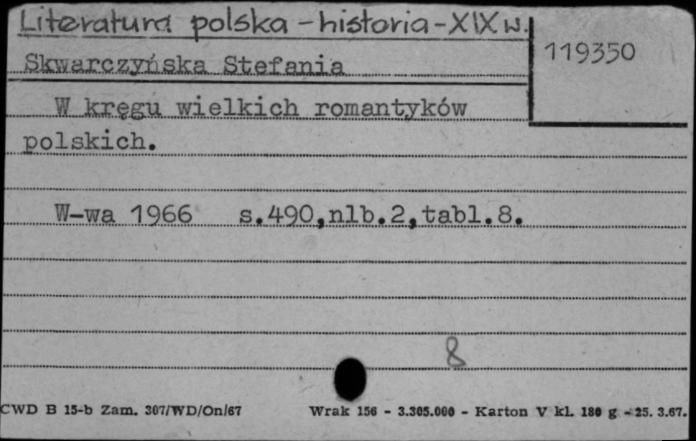 Literatura polska - historia - XIX w.
119350
Skwarczyńska Stefania
W kręgu wielkich romantyków
polskich.
W-wa 1966 s.490,nlb.2,tabl.8.
8
CWD B 15-b Zam. 307/WD/On/67 Wrak 156 - 3.305.000 - Karton V kl. 180 g - 25. 3.67.